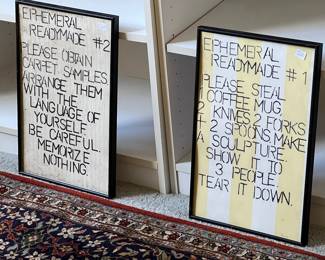 EPHEMERAL
READYMADE #2
PLEASE OBTAIN
CARPET SAMPLES
ARRANGE THEM
WITH THE
LANGUAGE OF
YOURSELF.
BE CAREFUL.
MEMORIZE
NOTHING.
EPHEMERAL
READYMADE #1
PLEASE STEAL
1 COFFEE MUG
2 KNIVES 2 FORKS
+ 2 SPOONS MAKE
A SCULPTURE.
SHOW IT TO
3 PEOPLE.
TEAR IT DOWN.